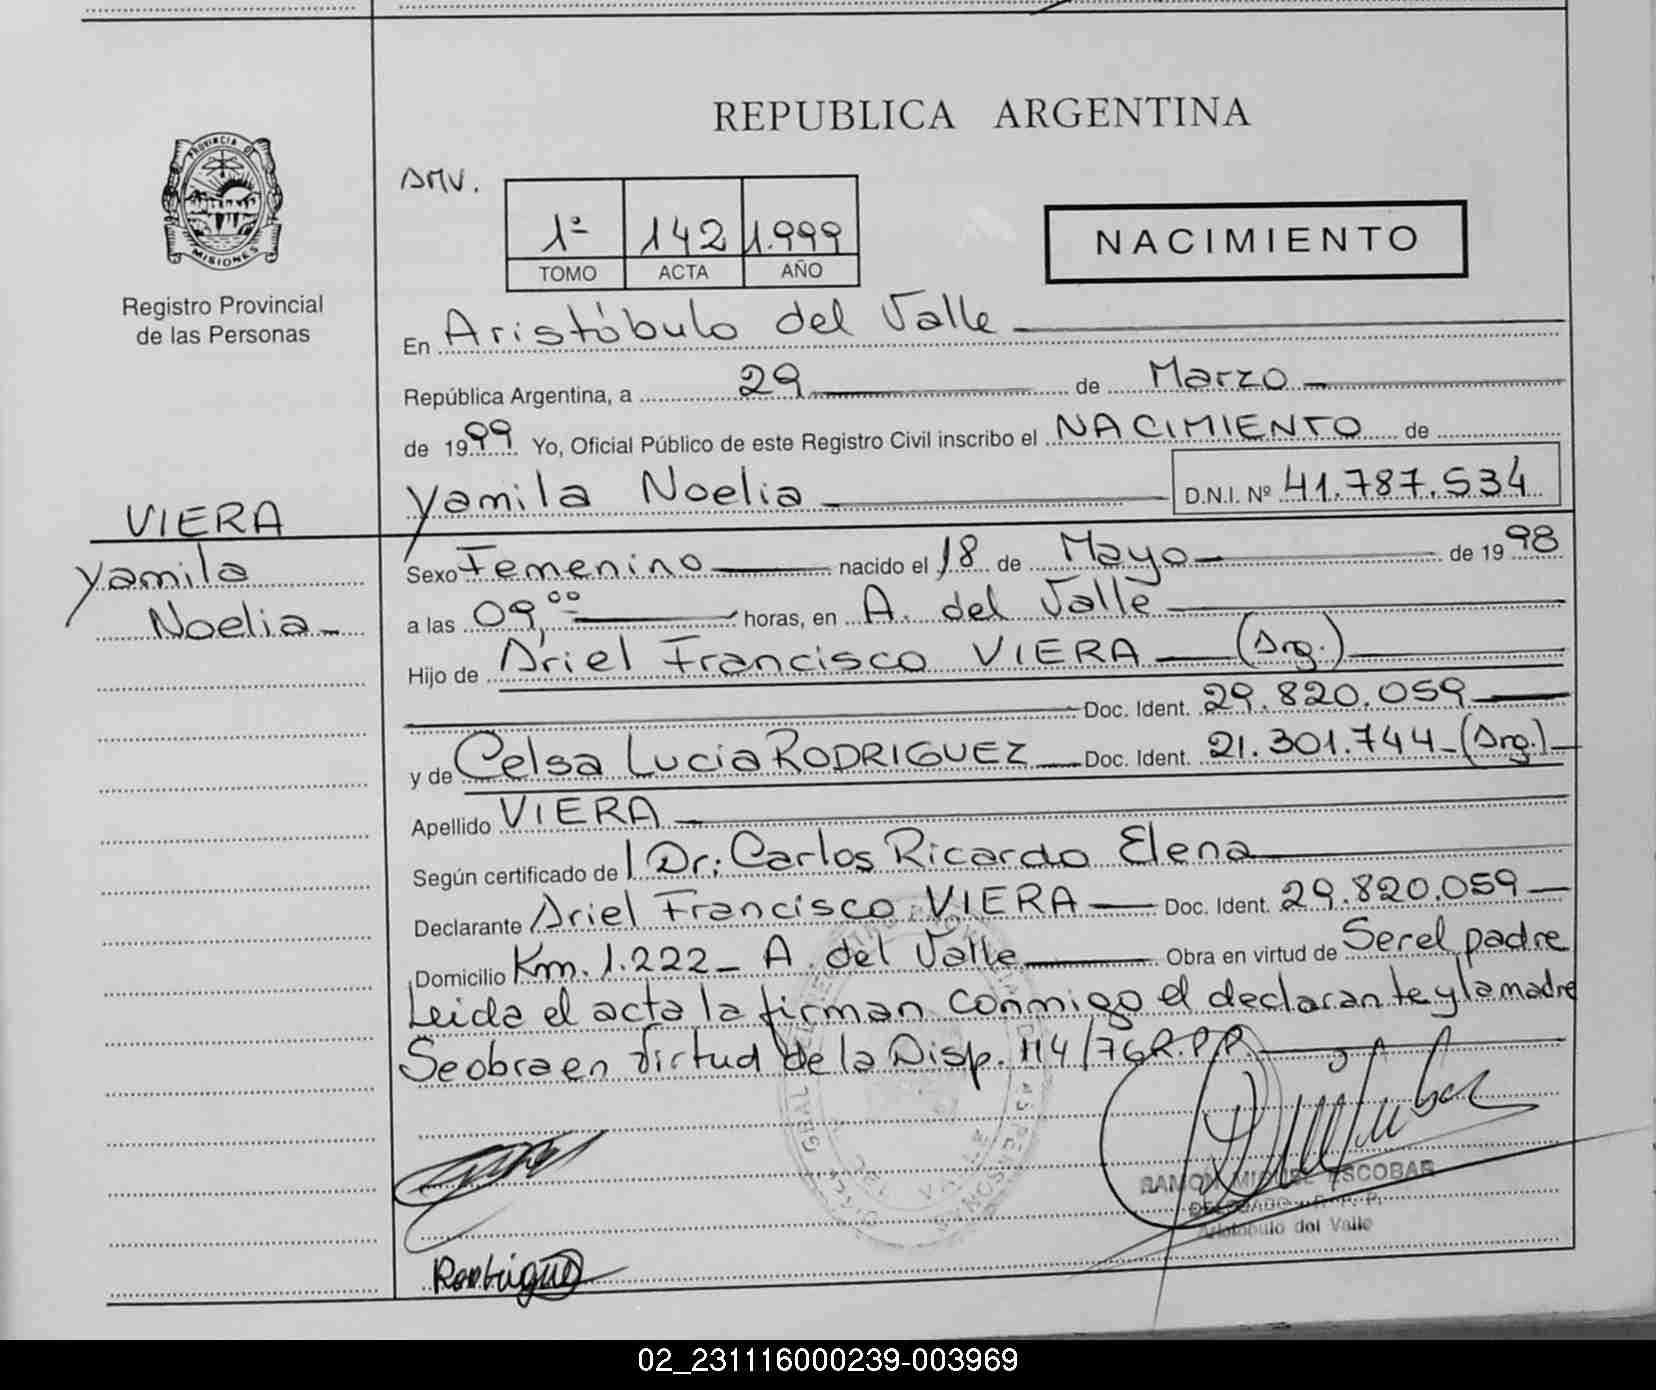 REPUBLICA ARGENTINA
PROVINCIA DE
MISIONES
Registro Provincial
de las Personas
AMV.
1º 142 1.999
TOMO ACTA AÑO
NACIMIENTO
En Aristóbulo del Valle
República Argentina, a 29 de Marzo
de 1999 Yo, Oficial Público de este Registro Civil inscribo el NACIMIENTO de
Yamila Noelia D.N.I. Nº 41.787.534
VIERA
Yamila
Noelia
Sexo Femenino nacido el 18 de Mayo de 1998
a las 09,00 horas, en A. del Valle
Hijo de Ariel Francisco VIERA (Arg.)
Doc. Ident. 29.820.059
y de Celsa Lucia RODRIGUEZ Doc. Ident. 21.301.744 (Arg.)
Apellido VIERA
Según certificado de l Dr: Carlos Ricardo Elena
Declarante Ariel Francisco VIERA Doc. Ident. 29.820.059
Domicilio Km. 1.222 A. del Valle Obra en virtud de Ser el padre
Leida el acta la firman conmigo el declarante y la madre
Se obra en virtud de la Disp. 114/76 R.P.P.
RAMON MIGUEL ESCOBAR
DELEGADO R. P. P.
Aristobulo del Valle
02_231116000239-003969